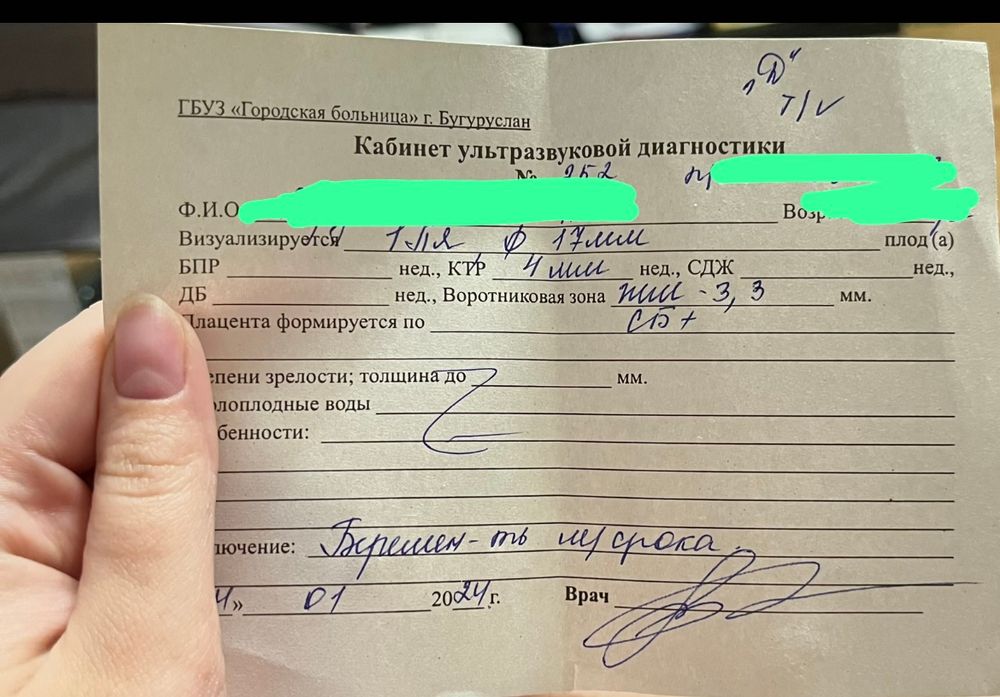 „D"
T/V
ГБУЗ «Городская больница» г. Бугуруслан
Кабинет ультразвуковой диагностики
№ 252
Ф.И.О
Визуализируется 1 пя ф 17мм плод (а)
БПР нед., КТР 4 мм нед., СДЖ нед.,
ДБ нед., Воротниковая зона жм - 3,3 мм.
Плацента формируется по СБ +
епени зрелости; толщина до мм.
олоплодные воды
бенности:
лючение: Беремен-ть м/срока
4» 01 2024 г. Врач